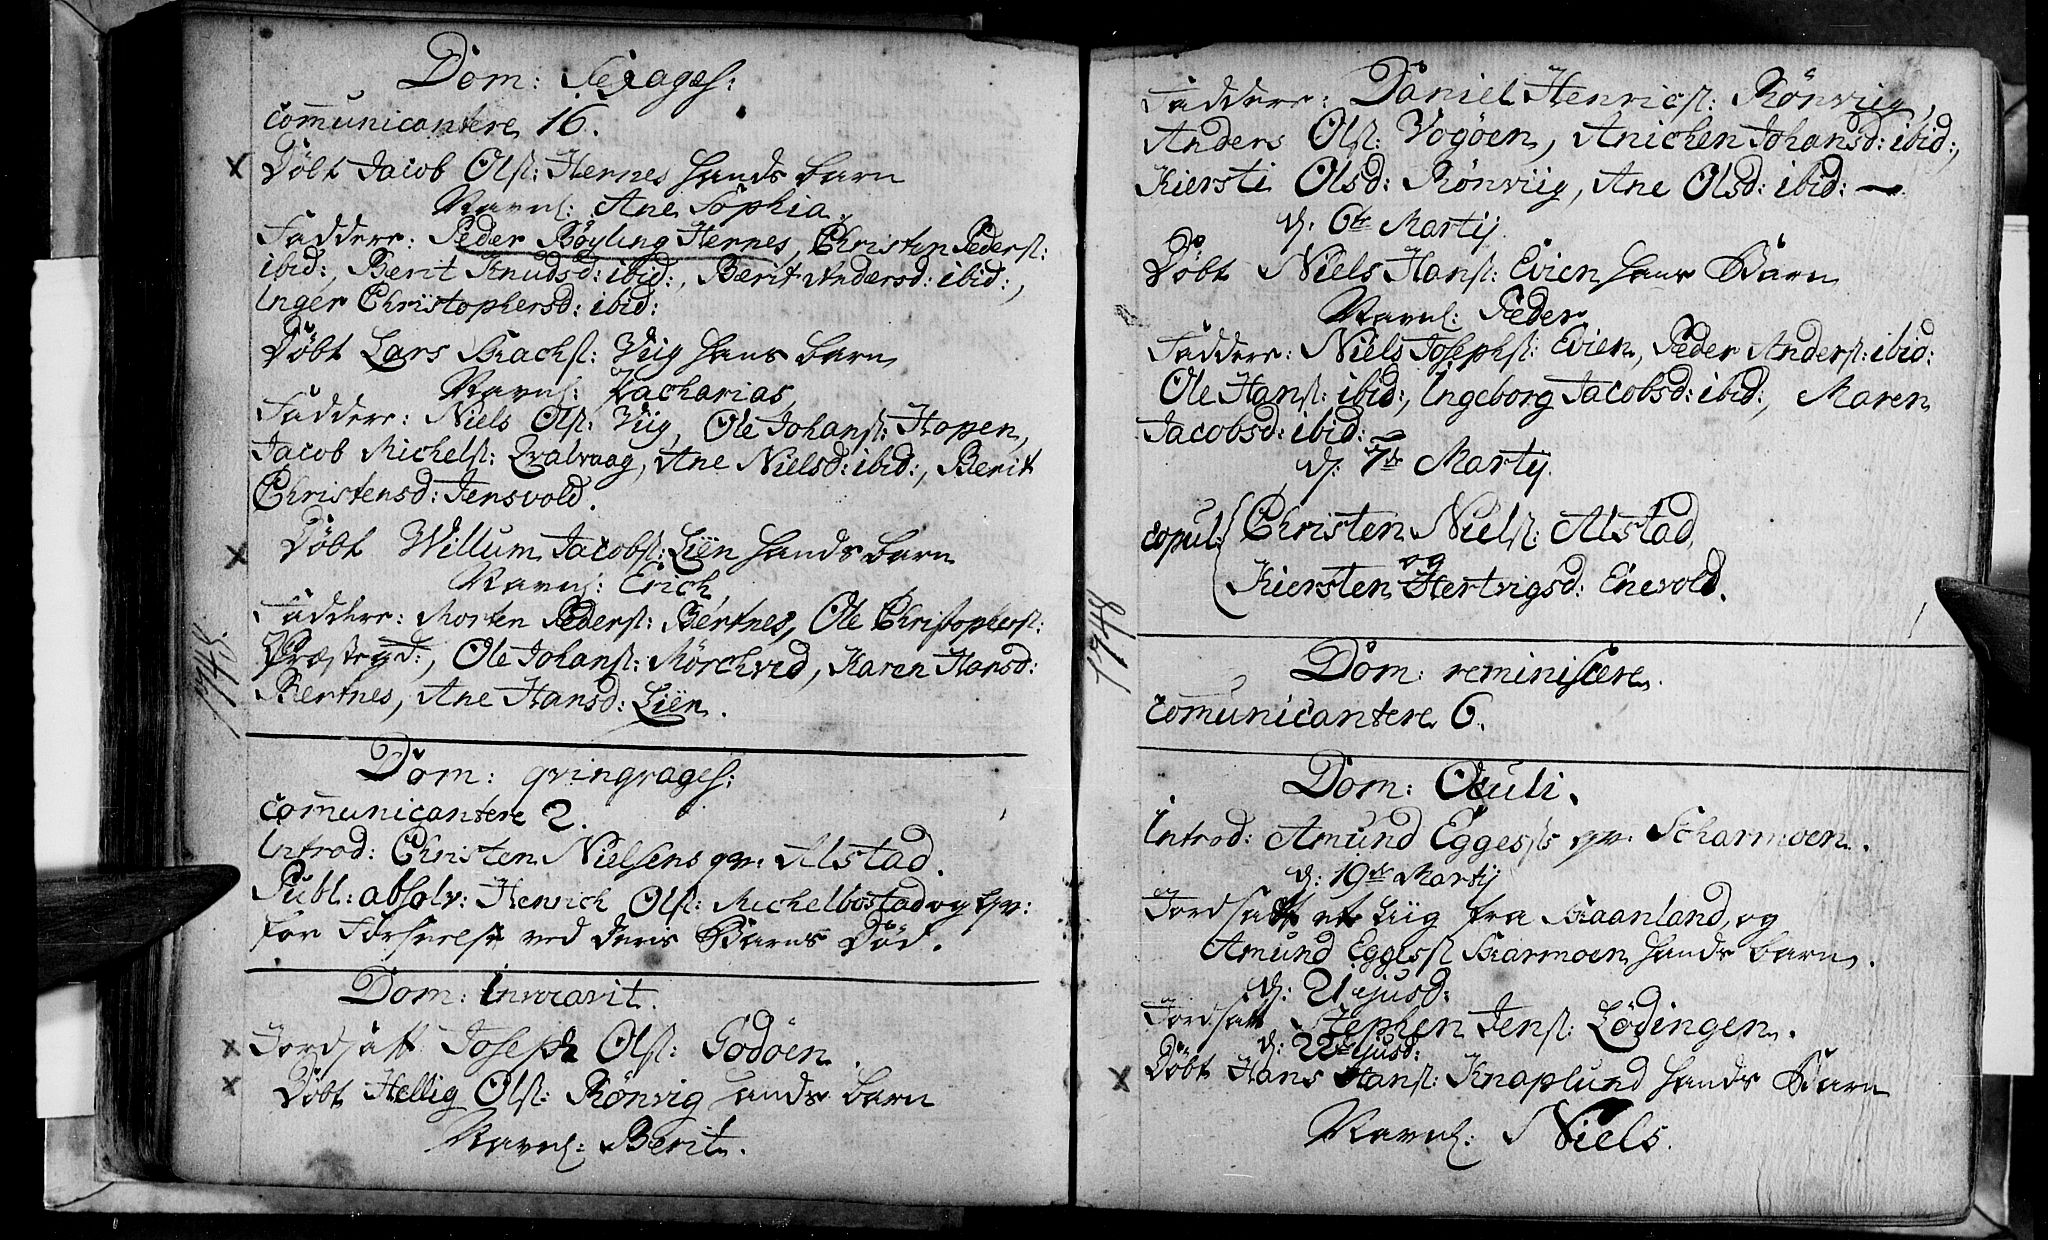 Dom: Sexages:
communicantere 16.
Döbt Jacob Ols: Hernes hands barn
Navnl: Ane Sophia.
Faddere: Peder Böyling Hernes, Christen Peders:
ibid:, Berit Knudsd: ibid:, Berit Andersd: ibid:,
Inger Christophersd: ibid:
Döbt Lars Zachs: Viig hans barn
Navnl: Zacharias
Faddere: Niels Ols: Viig, Ole Johans: Hopen,
Jacob Michels: Qvalvaag, Ane Nielsd: ibid:, Berit
Christensd: Jensvold.
Döbt Willum Jacobs: Liën hands barn
Navnl: Erich
Faddere: Morten Peders: Bertnes, Ole Christophers:
Præstegd:, Ole Johans: Mörchved, Karen Hansd:
Bertnes, Ane Hansd: Liën.
1748.
Dom: qvinqvages:
communicantere 2.
Introd: Christen Nielsens qv: Alstad.
Publ: absolv: Henrich Ols: Michelbostad og qv:
for Forseelse ved deris Barns Död.
Dom: Invocavit.
Jordsatt Joseph Ols: Godöen.
Döbt Hellig Ols: Rönvig hands barn
Navnl: Berit.
Faddere: Daniel Henrics: Rönviig,
Anders Ols: Vogöen, Anichen Johansd: ibid:,
Kiersti Olsd: Rönviig, Ane Olsd: ibid:
d: 6te Martij
Döbt Niels Hans: Evien hans Barn
Navnl: Peder
Faddere: Niels Josephs: Evien, Peder Anders: ibid:
Ole Hans: ibid:, Ingeborg Jacobsd: ibid:, Maren
Jacobsd: ibid:
d: 7de Martij.
copul: Christen Niels: Alstad
og
Kiersten Hertvigsd: Enevold.
1748
Dom: reminiscere.
communicantere 6.
Dom: Oculi.
Introd: Amund Eggess qv: Scharmoen.
d: 19de Martij
Jordsatt et Liig fra Skaanland, og
Amund Eggess Skarmoen hands barn.
d: 21 ejusd:
Jordsatt Stephen Jens: Lödingen.
d: 22de ejusd:
Döbt Hans Hans: Knaplund hands Barn
Navnl: Niels.